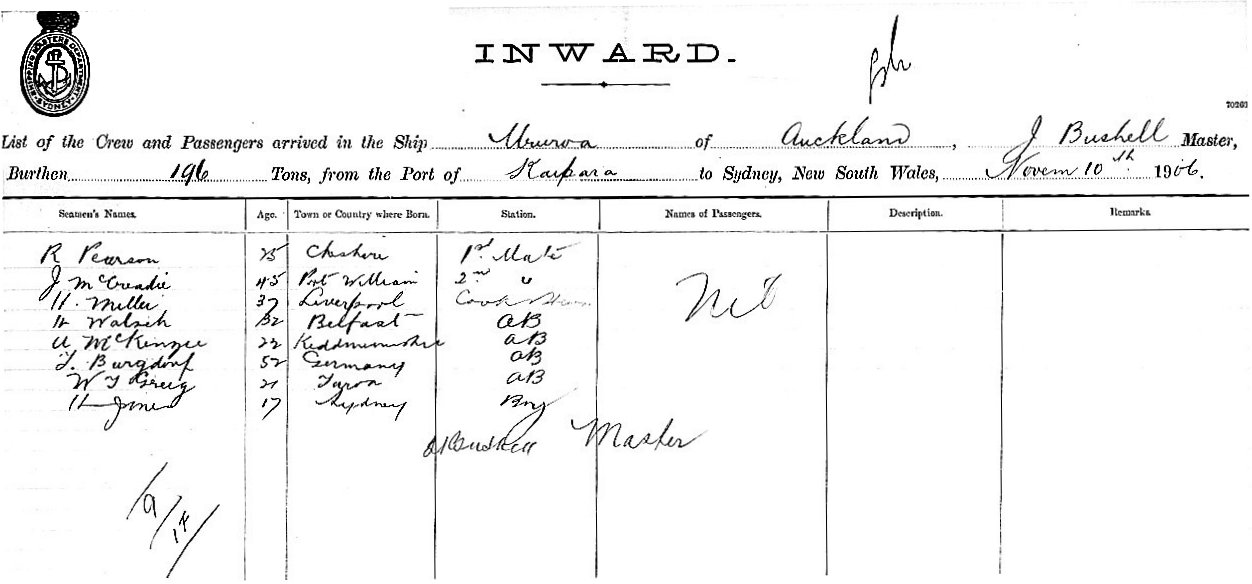 SHIPPING MASTERS DEPARTMENT SYDNEY
INWARD.
70263
List of the Crew and Passengers arrived in the Ship of Auckland, J Bushell Master,
Burthen 196 Tons, from the Port of Kaipara to Sydney, New South Wales, Novem 10th 1906.
Seamen's Names. Age. Town or Country where Born. Station. Names of Passengers. Description. Remarks
R Pearson 25 Cheshire 1st Mate
J McCreadie 45 Port William 2nd "
H. Miller 37 Liverpool Cook
H Walsh 32 Belfast AB
A McKenzie 22 AB
T. Burgdorf 52 Germany AB
W T Greig 21 AB
H Jones 17 Sydney Boy
Nil
J Bushell Master
9/14